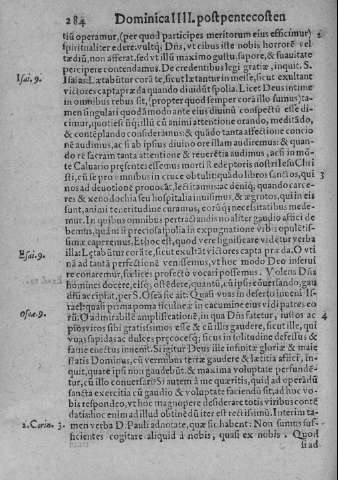 284 Dominica IIII. post pentecosten
tiũ operamur, (per quod participes meritorum eius efficimur)
spiritualiter edere: vultq; Dñs, vt cibus iste nobis horrorẽ vel
tædiũ, non afferat, sed vt illũ maximo gustu, sapore, & suauitate
percipere contendamus. De credentibus legi gratiæ, inquit. S.
Isai, 9. Isaias. Lætabũtur corã te, sicut lætantur in messe, sicut exultant
victores capta præda quando diuidũt spolia. Licet Deus intime
in omnibus rebus sit, (propter quod semper corã illo sumus) ta-
men singulari quodã modo ante eius diuinũ conspectũ esse di-
cimur, quoties cũq; illũ cũ animi attentione orando, meditãdo,
& contẽplando consideramus: & quãdo tanta affectione concio
nẽ audimus, ac si ab ipsius diuino ore illam audiremus: & quan-
do rẽ sacram tanta attentione & reuerẽtia audimus, ac si in mõ-
te Caluario præsentes essemus morti redẽptoris nostri Iesu Chri
sti, cũ se pro omnibus in cruce obtulit: quãdo libros sanctos, qui
nos ad deuotionẽ prouocãt, lectitamus: ac deniq; quando carce-
res & xenodochia seu hospitalia inuisimus, & ægrotos, qui in eis
sunt, animi teneritudine curamus, eorũq; necessitatibus mede-
mur. In quibus omnibus pertractandis no aliter gaudio affici de
bemus, quàm si preciosa spolia in expugnatione vrbis opulētis-
simæ caperemus. Et hoc est, quod vere significare videtur verba
Esai. 9. illa: Lætabũtur corã te, sicut exultãt victores capta præda. O vti
nã ad tantã perfectionẽ venissemus, vt hoc modo Deo inserui
re conaremur, fœlices profecto vocari possemus. Volens Dñs
homines docere, eisq; ostẽdere, quantũ, cũ ipsis cõuersando, gau
dijs accipiat, per S. Osea sic ait: Quasi vuas in deserto inueni Is-
Osea. 9. rael: quasi prima poma ficulneæ in cacumine eius vidi patres eo
rũ. O admirabilẽ amplificationẽ, in qua Dñs fatetur, iustos ac
pios viros sibi gratissimos esse & cũ illis gaudere, sicut ille, qui
vuas sapidas ac dulces præcoces q; ficus in solitudine defessus &
fame enectus inuenit. Si igitur Deus ille infinitæ gloriæ & maie
statis Dominus, cũ vermibus terræ gaudere & lætitia affici, in-
quit, quare ipsi non gaudebũt, & maxima voluptate perfundẽ-
tur, cũ illo conuersari? Si autem à me quæritis, quid ad operãdũ
sancta exercitia cũ gaudio & voluptate faciendũ sit, ad hoc vo-
bis respondeo, vt hoc magnopere desideretis totis viribus contẽ
datis: hoc enim ad illud obtinẽdũ iter est rectissimũ. Interim ta-
2. Corin. 3. men verba D. Pauli adnotate, quæ sic habent: Non sumus suf-
ficientes cogitare aliquid à nobis, quasi ex nobis. Quod
si ad